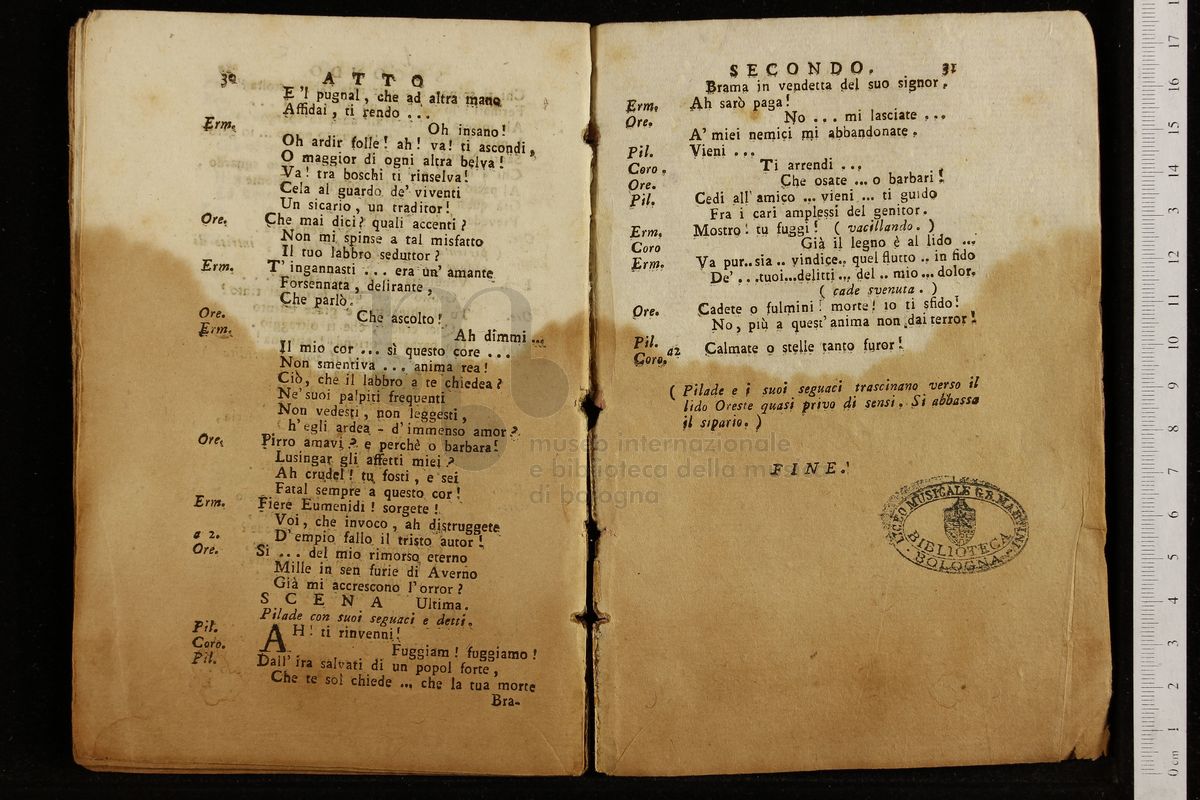 30 ATTO
E 'l pugnal, che ad altra mano
Affidai, ti rendo ...
Erm. Oh insano!
Oh ardir folle! ah! va! ti ascondi,
O maggior di ogni altra belva!
Va! tra boschi ti rinselva!
Cela al guardo de' viventi
Un sicario, un traditor!
Ore. Che mai dici? quali accenti?
Non mi spinse a tal misfatto
Il tuo labbro seduttor?
Erm. T' ingannasti ... era un' amante
Forsennata, delirante,
Che parlò.
Ore. Che ascolto!
Erm. Ah dimmi ...
Il mio cor ... sì questo core ...
Non smentiva ... anima rea!
Ciò, che il labbro a te chiedea?
Ne' suoi palpiti frequenti
Non vedesti, non leggesti,
Ch' egli ardea - d' immenso amor?
Ore. Pirro amavi? e perchè o barbara!
Lusingar gli affetti miei?
Ah crudel! tu fosti, e sei
Fatal sempre a questo cor!
Erm. Fiere Eumenidi! sorgete!
Voi, che invoco, ah distruggete
a 2. D' empio fallo il tristo autor!
Ore. Sì ... del mio rimorso eterno
Mille in sen furie di Averno
Già mi accrescono l' orror?
SCENA Ultima.
Pilade con suoi seguaci e detti.
Pil. AH! ti rinvenni!
Coro. Fuggiam! fuggiamo!
Pil. Dall' ira salvati di un popol forte,
Che te sol chiede ... che la tua morte
Bra-
SECONDO. 31
Brama in vendetta del suo signor.
Erm. Ah sarò paga!
Ore. No ... mi lasciate ...
A' miei nemici mi abbandonate.
Pil. Vieni ...
Coro. Ti arrendi ...
Ore. Che osate ... o barbari!
Pil. Cedi all' amico ... vieni ... ti guido
Fra i cari amplessi del genitor.
Erm. Mostro! tu fuggi! ( vacillando. )
Coro Già il legno è al lido ...
Erm. Va pur..sia .. vindice.. quel flutto .. in fido
De' ...tuoi...delitti ... del .. mio ... dolor.
( cade svenuta. )
Ore. Cadete o fulmini! morte! io ti sfido!
No, più a quest' anima non dai terror!
Pil.
Coro. a2 Calmate o stelle tanto furor!
( Pilade e i suoi seguaci trascinano verso il
lido Oreste quasi privo di sensi. Si abbassa
il sipario. )
FINE.
LICEO MUSICALE G.B. MARTINI
BIBLIOTECA
· BOLOGNA ·
museo internazionale
e biblioteca della musica
di bologna
0 cm 1 2 3 4 5 6 7 8 9 10 11 12 13 14 15 16 17